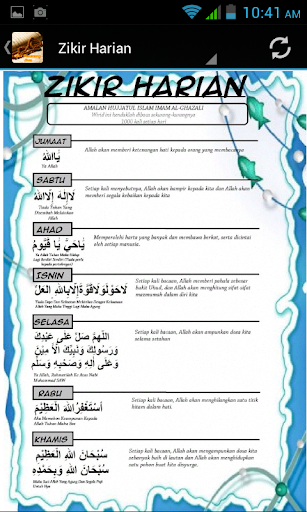 10:41 AM
Zikir Harian
ZIKIR HARIAN
AMALAN HUJJATUL ISLAM IMAM AL-GHAZALI
Wirid ini hendaklah dibaca sekurang-kurangnya
1000 kali setiap hari
JUMAAT
يَا اللهُ
Ya Allah
Allah akan memberi ketenangan hati kepada orang yang membacanya
SABTU
لَا إِلَهَ إِلَّا اللهُ
Tiada Tuhan Yang
Disembah Melainkan
Allah
Setiap kali menyebutnya, Allah akan hampir kepada kita dan Allah akan
memberi segala kebaikan kepada kita
AHAD
يَا حَيُّ يَا قَيُّوْمُ
Ya Allah Tuhan Maha Hidup
Memperolehi harta yang banyak dan membawa berkat, serta dicintai
oleh setiap manusia.
ISNIN
لَا حَوْلَ وَلَا قُوَّةَ إِلَّا بِاللهِ الْعَلِيِّ
Setiap kali bacaan, Allah akan memberi pahala sebesar
SELASA
اللَّهُمَّ صَلِّ عَلَى عَبْدِكَ
وَرَسُوْلِكَ وَنَبِيِّكَ الْأُمِّيِّيْنَ
وَعَلَى آلِهِ وَصَحْبِهِ وَسَلِّمْ
Ya Allah, Rahmatilah Ke Atas Nabi
Muhammad SAW
Setiap kali bacaan, Allah akan ampunkan dosa kita
selama setahun
RABU
أَسْتَغْفِرُ اللهَ الْعَظِيْمَ
Aku Memohon Keampunan Kepada
Allah Tuhan Maha
Setiap kali bacaan, Allah akan menghilangkan satu titik
hitam dalam hati.
KHAMIS
سُبْحَانَ اللهِ الْعَظِيْمِ
سُبْحَانَ اللهِ وَبِحَمْدِهِ
Maha Suci Allah Yang Agung Dan Segala Puji
Setiap kali bacaan, Allah akan mengampunkan dosa kita
sebanyak buih di lautan dan Allah akan menghidupkan
satu pohon buat kita disyurga.